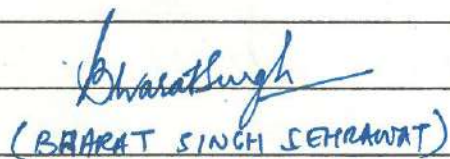 Bharatsingh
(BHARAT SINGH SEHRAWAT)